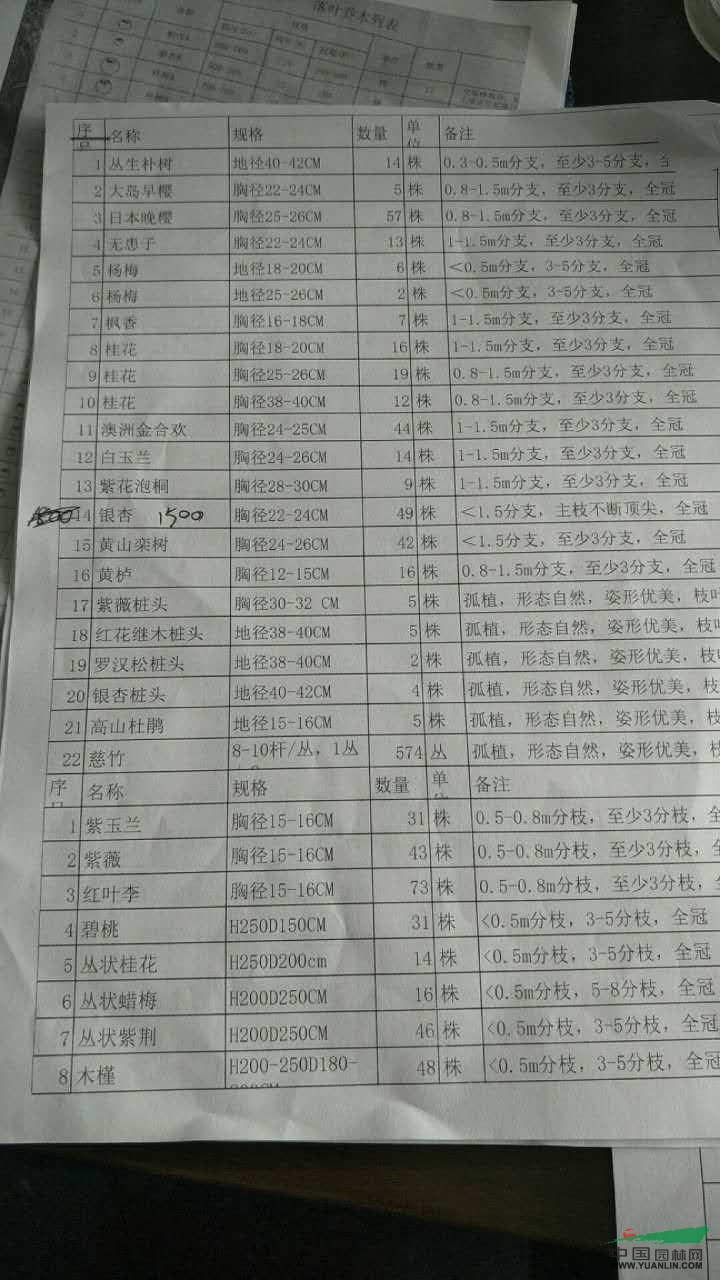 落叶乔木列表
序号 名称 规格 数量 单位 备注
1 丛生朴树 地径40-42CM 14 株 0.3-0.5m分支，至少3-5分支，全
2 大岛早樱 胸径22-24CM 5 株 0.8-1.5m分支，至少3分支，全冠
3 日本晚樱 胸径25-26CM 57 株 0.8-1.5m分支，至少3分支，全冠
4 无患子 胸径22-24CM 13 株 1-1.5m分支，至少3分支，全冠
5 杨梅 地径18-20CM 6 株 <0.5m分支，3-5分支，全冠
6 杨梅 地径25-26CM 2 株 <0.5m分支，3-5分支，全冠
7 枫香 胸径16-18CM 7 株 1-1.5m分支，至少3分支，全冠
8 桂花 胸径18-20CM 16 株 1-1.5m分支，至少3分支，全冠
9 桂花 胸径25-26CM 19 株 0.8-1.5m分支，至少3分支，全冠
10 桂花 胸径38-40CM 12 株 0.8-1.5m分支，至少3分支，全冠
11 澳洲金合欢 胸径24-25CM 44 株 1-1.5m分支，至少3分支，全冠
12 白玉兰 胸径24-26CM 14 株 1-1.5m分支，至少3分支，全冠
13 紫花泡桐 胸径28-30CM 9 株 1-1.5m分支，至少3分支，全冠
14 银杏 1500 胸径22-24CM 49 株 <1.5分支，主枝不断顶尖，全冠
15 黄山栾树 胸径24-26CM 42 株 <1.5分支，至少3分支，全冠
16 黄栌 胸径12-15CM 16 株 0.8-1.5m分支，至少3分支，全冠
17 紫薇桩头 胸径30-32 CM 5 株 孤植，形态自然，姿形优美，枝叶
18 红花继木桩头 地径38-40CM 5 株 孤植，形态自然，姿形优美，枝
19 罗汉松桩头 地径38-40CM 2 株 孤植，形态自然，姿形优美，枝
20 银杏桩头 地径40-42CM 4 株 孤植，形态自然，姿形优美，枝
21 高山杜鹃 地径15-16CM 5 株 孤植，形态自然，姿形优美，枝
22 慈竹 8-10杆/丛，1丛 574 丛 孤植，形态自然，姿形优美，枝
序号 名称 规格 数量 单位 备注
1 紫玉兰 胸径15-16CM 31 株 0.5-0.8m分枝，至少3分枝，全
2 紫薇 胸径15-16CM 43 株 0.5-0.8m分枝，至少3分枝，全
3 红叶李 胸径15-16CM 73 株 0.5-0.8m分枝，至少3分枝，全
4 碧桃 H250D150CM 31 株 <0.5m分枝，3-5分枝，全冠
5 丛状桂花 H250D200cm 14 株 <0.5m分枝，3-5分枝，全冠
6 丛状蜡梅 H200D250CM 16 株 <0.5m分枝，5-8分枝，全冠
7 丛状紫荆 H200D250CM 46 株 <0.5m分枝，3-5分枝，全冠
8 木槿 H200-250D180- 48 株 <0.5m分枝，3-5分枝，全冠
中国园林网
WWW.YUANLIN.COM